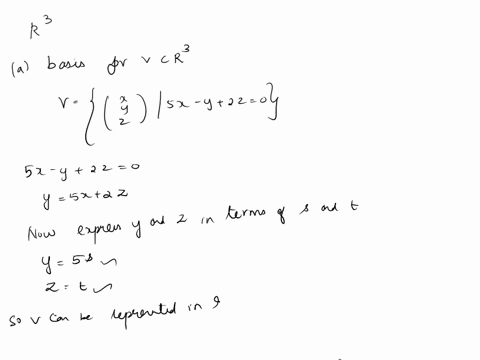 R³
(a) basis for V ⊂ R³
V = { ( x y z ) | 5x - y + 2z = 0 }
5x - y + 2z = 0
y = 5x + 2z
Now express y and z in terms of s and t
y = 5s
z = t
So V can be represented in